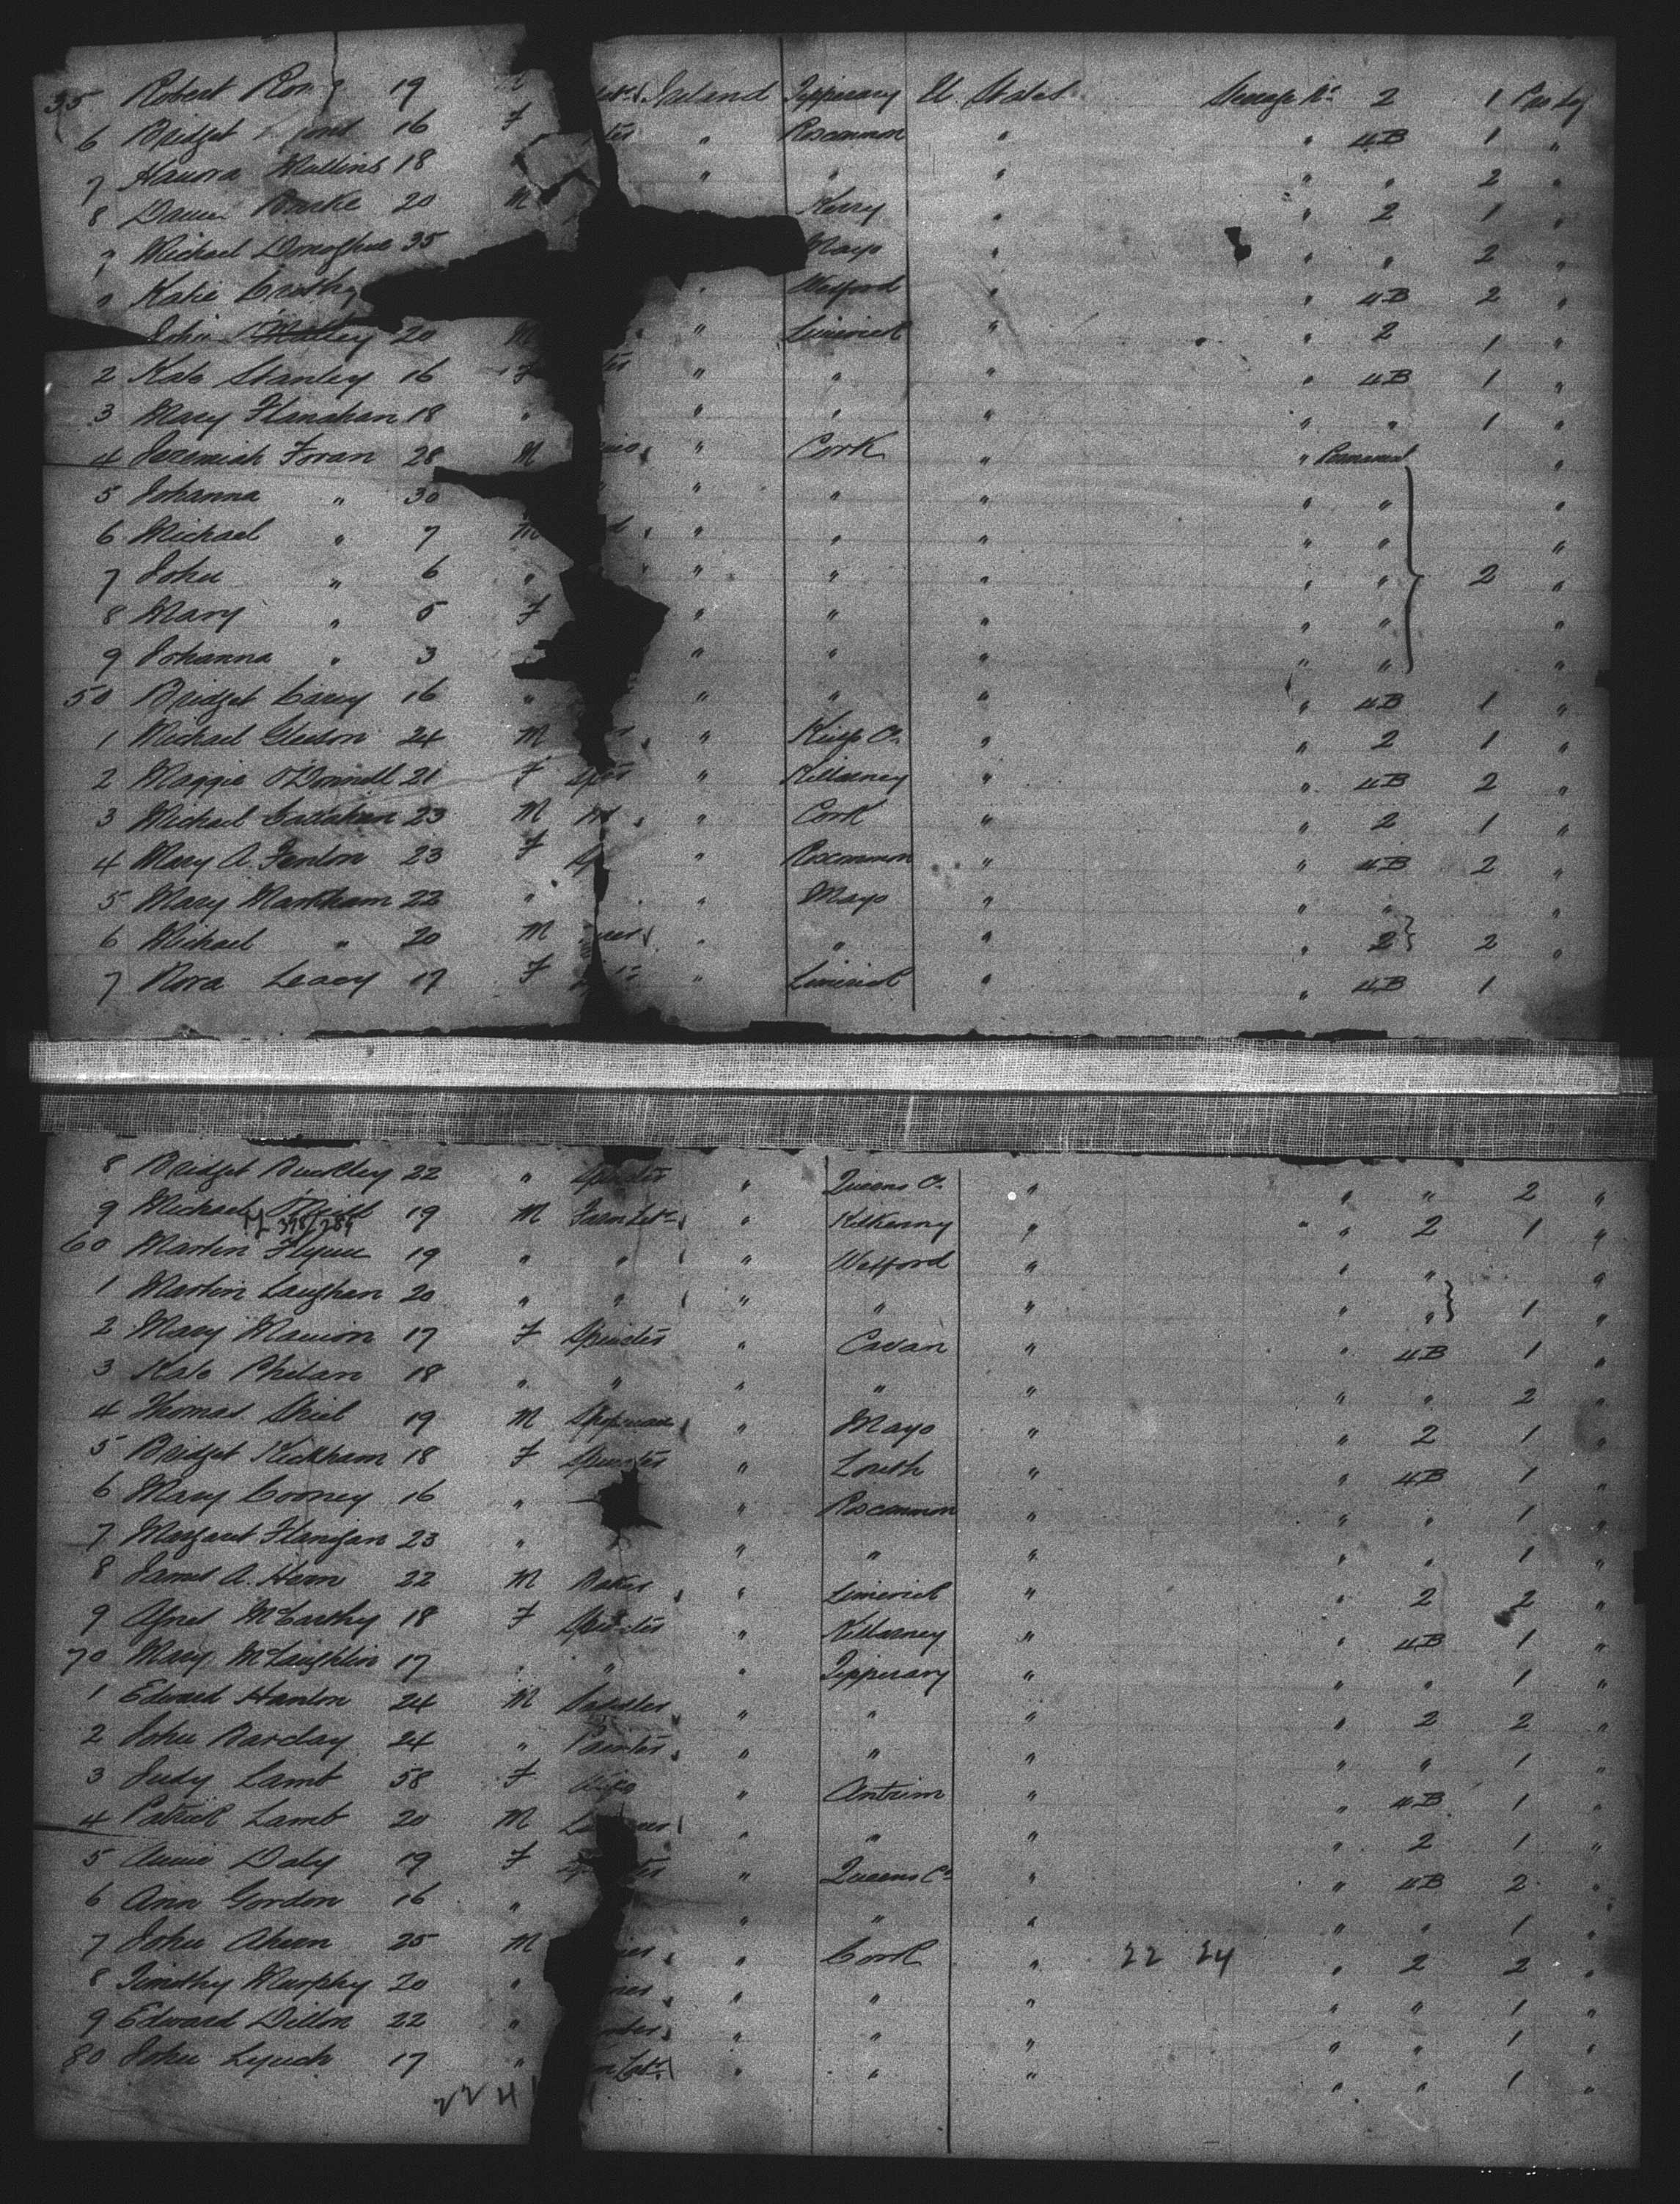 35 Robert 19 M Ireland Tipperary U. States Steerage No 2 1
6 Bridget 16 F " Roscommon " " 4B 1 "
7 Hanora Mullins 18 " " " " " 2 "
8 Burke 20 M Kerry " " 2 1 "
Michael Donoghue 35 Mayo " " " 2 "
Katie " Wexford " " 4B 2 "
John O'Malley 20 M " Limerick " " 2 1 "
2 Kate Stanley 16 F " " " " 4B 1 "
3 Mary Flanahan 18 " " " " " " 1 "
4 Jeremiah Foran 28 M " Cork " " "
5 Johanna " 30 " " " " " "
6 Michael " 7 M " " " " " "
7 John " 6 " " " " " " 2 "
8 Mary " 5 F " " " " " "
9 Johanna " 3 " " " " " "
50 Bridget Carey 16 " " " " " 4B 1 "
1 Michael Gleeson 24 M " Kings Co. " " 2 1 "
2 Maggie O'Donnell 21 F " Killarney " " 4B 2 "
3 Michael Callahan 23 M " Cork " " 2 1 "
4 Mary A. Fenton 23 F " Roscommon " " 4B 2 "
5 Mary Markham 22 " " Mayo " " " "
6 Michael " 20 M " " " " 2 2 "
7 Nora Leacy 17 F " Limerick " " 4B 1 "
8 Bridget Buckley 22 " Spinster " Queens Co. " " " 2 "
9 Michael O'Neill 19 M " Kilkenny " " 2 1 "
60 Martin Flynn 19 " " " Wexford " " " "
1 Martin Laughan 20 " " " " " " " 1 "
2 Mary Mannion 17 F Spinster " Cavan " " 4B 1 "
3 Kate Phelan 18 " " " " " " " 2 "
4 Thomas Shiel 19 M " Mayo " " 2 1 "
5 Bridget Kickham 18 F Spinster " Louth " " 4B 1 "
6 Mary Cooney 16 " " Roscommon " " " 1 "
7 Margaret Flanigan 23 " " " " " " 1 "
8 James A. Hern 22 M Baker " Limerick " " 2 2 "
9 Agnes McCarthy 18 F Spinster " Killarney " " 4B 1 "
70 Mary McLaughlin 17 " " " Tipperary " " " 1 "
1 Edward Hanlon 24 M Saddler " " " " 2 2 "
2 John Barclay 24 " Painter " " " " " 1 "
3 Judy Lamb 58 F " Antrim " " 4B 1 "
4 Patrick Lamb 20 M " " " " 2 1 "
5 Annie Daly 19 F " Queens Co. " " 4B 2 "
6 Ann Gordon 16 " " " " " " 1 "
7 John Ahern 25 M " Cork " 22 24 " 2 2 "
8 Timothy Murphy 20 " " " " " " 1 "
9 Edward Dillon 22 " " " " " " 1 "
80 John Lynch 17 " " " " " " 1 "